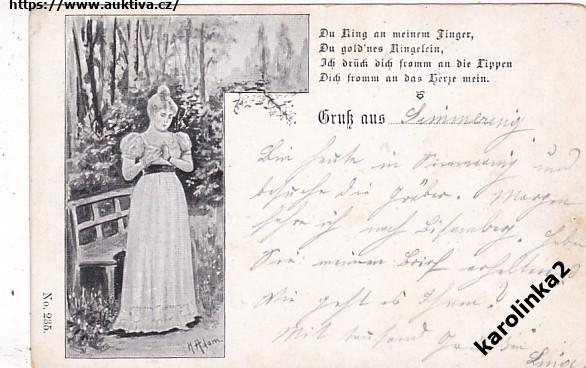 https://www.auktiva.cz/
Du Ring an meinem Finger,
Du gold'nes Ringelein,
Ich drück dich fromm an die Lippen
Dich fromm an das Herze mein.
Gruß aus Simmering
Bin heute in Simmering und
besuche die Gräber. Morgen
fahre ich nach Bisamberg. Habe
Sie meinen Brief erhalten.
Wie geht es Ihnen?
Mit tausend
No. 235.
H. Adam.
karolinka2